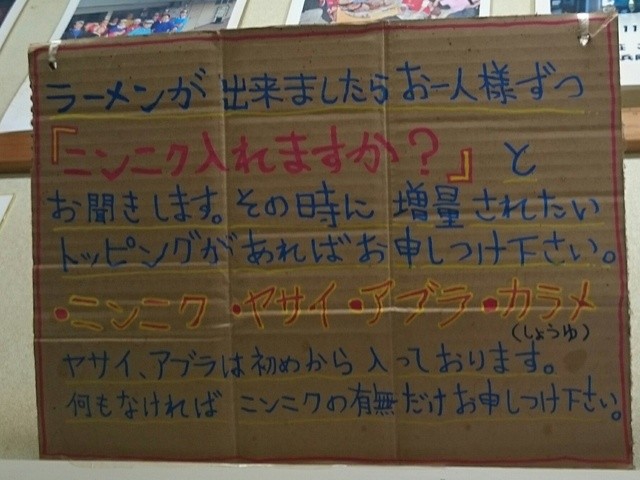 ラーメンが出来ましたらお一人様ずつ
『ニンニク入れますか？』と
お聞きします。その時に増量されたい
トッピングがあればお申しつけ下さい。
・ニンニク・ヤサイ・アブラ・カラメ
(しょうゆ)
ヤサイ、アブラは初めから入っております。
何もなければニンニクの有無だけお申しつけ下さい。